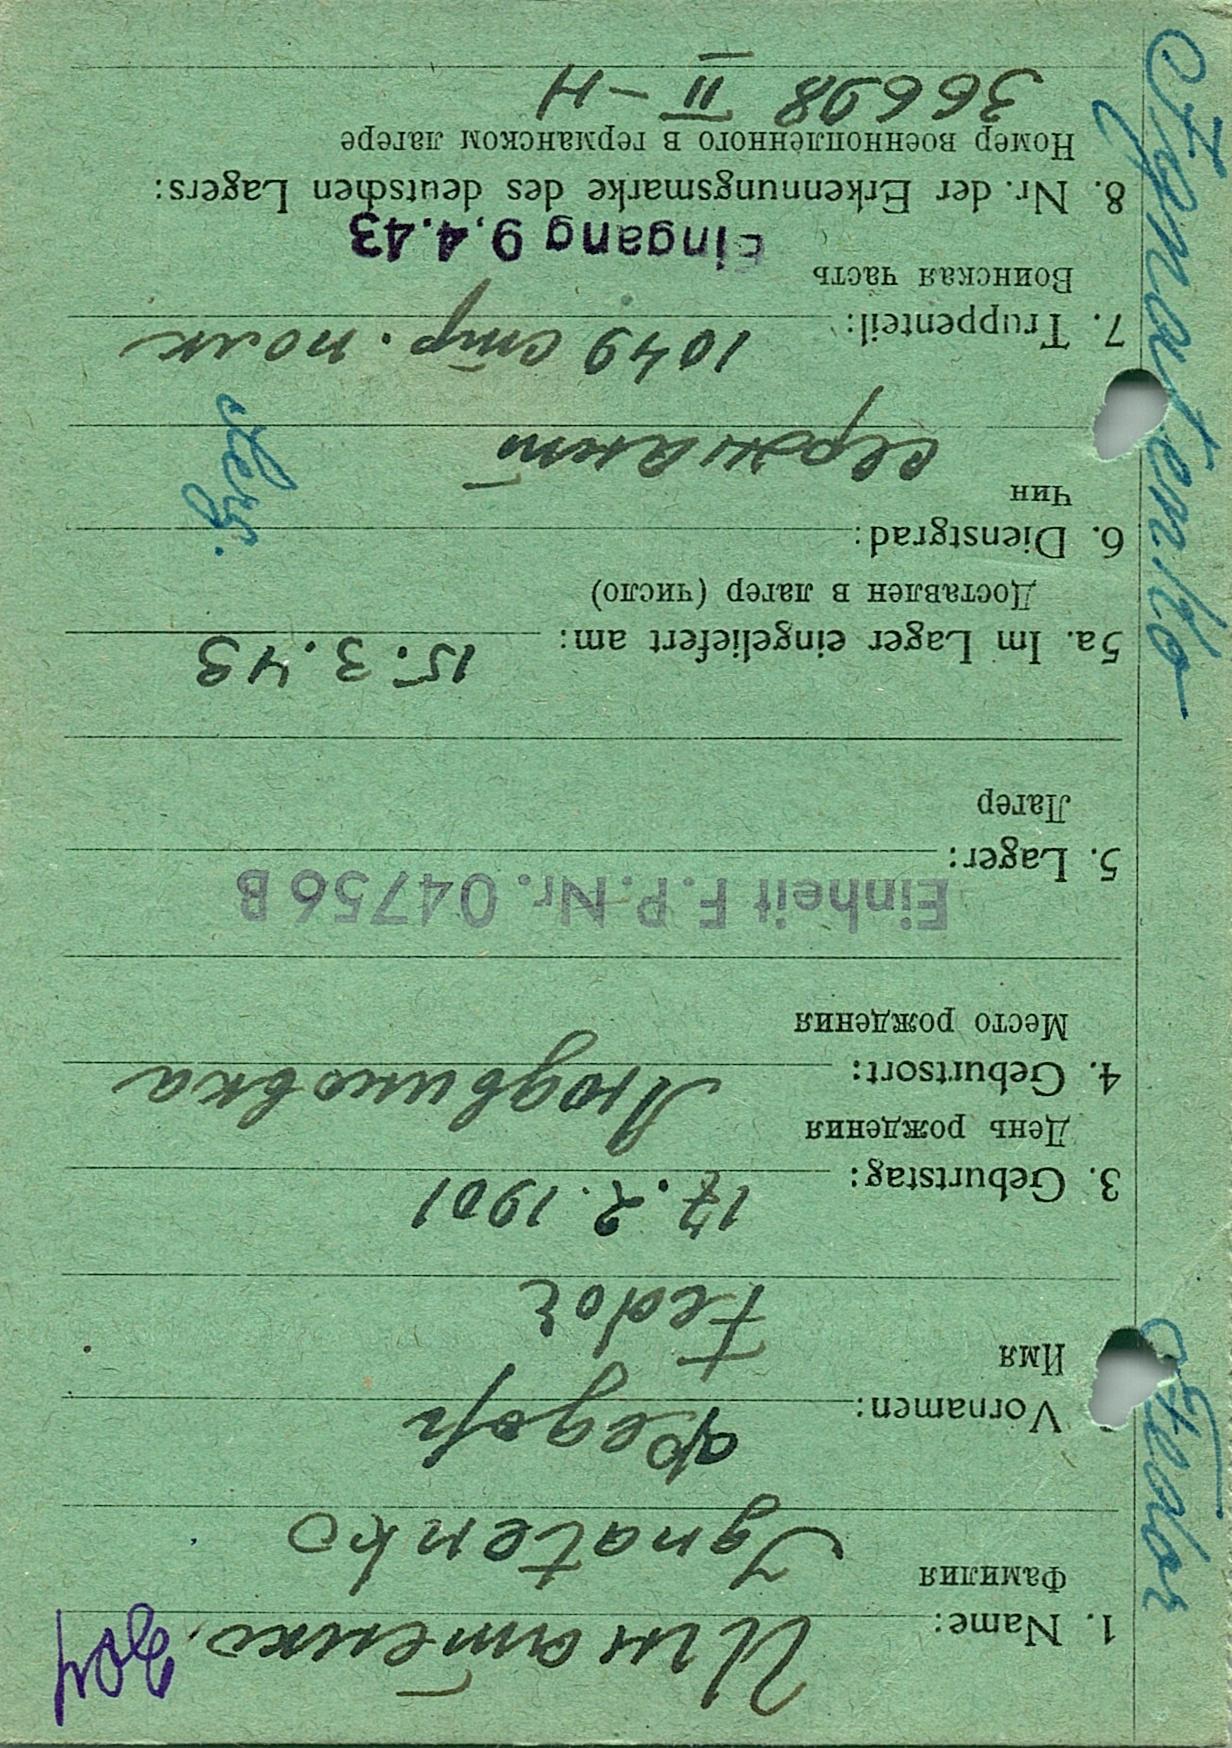 1. Name: Игнатенко,
Фамилия
Ignatenko
Vornamen: Федор
Имя
Fedor
3. Geburtstag: 17.2.1901
День рождения
4. Geburtsort: Людвиновка
Место рождения
Einheit F.P.Nr. 04756 B
5. Lager:
Лагерь
5a. Im Lager eingeliefert am: 15.3.43
Доставлен в лагер (число)
6. Dienstgrad:
Чин
сержант
Serg.
7. Truppenteil: 1049 стр. полк
Воинская часть
Eingang 9.4.43
8. Nr. der Erkennungsmarke des deutschen Lagers:
Номер военнопленного в германском лагере
36698 II-H
Ignatenko
Fedor